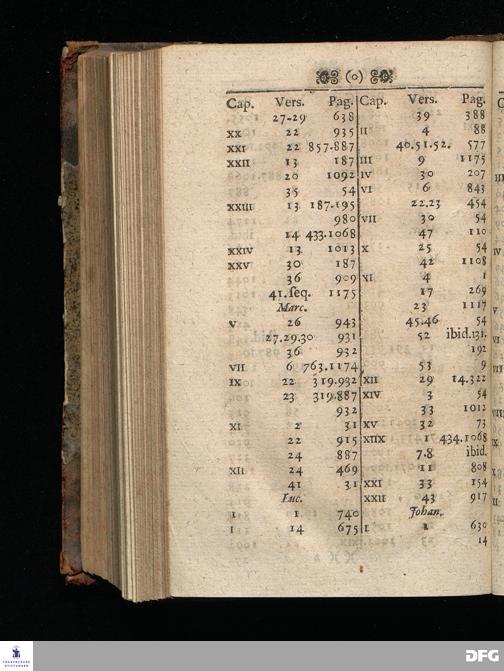 (o)
Cap. Vers. Pag.
27-29 638
XX 22 935
XXI 22 857.887
XXII 13 187
20 1092
35 54
XXIII 13 187.195
980
14 433.1068
XXIV 13 1013
XXV 30 187
36 909
41.seq. 1175
Marc.
V 26 943
27.29.30 931
36 932
VII 6 763.1174
IX 22 319.932
23 319.887
932
XI 2 31
22 915
24 887
XII 24 469
41 31
Luc.
I 1 740
I 14 675
Cap. Vers. Pag.
39 388
II 4 88
40.51.52. 577
III 9 1175
IV 30 207
VI 6 843
22.23 454
VII 30 54
47 110
X 25 54
42 1108
XI 4 1
17 269
23 1117
45.46 54
52 ibid.131.
192
53 9
XII 29 14.322
XIV 3 54
33 1012
XV 32 73
XIIX 1 434.1068
7.8 ibid.
11 808
XXI 33 154
XXII 43 917
Johan.
I 1 630
14
FRANCKESCHE STIFTUNGEN
DFG